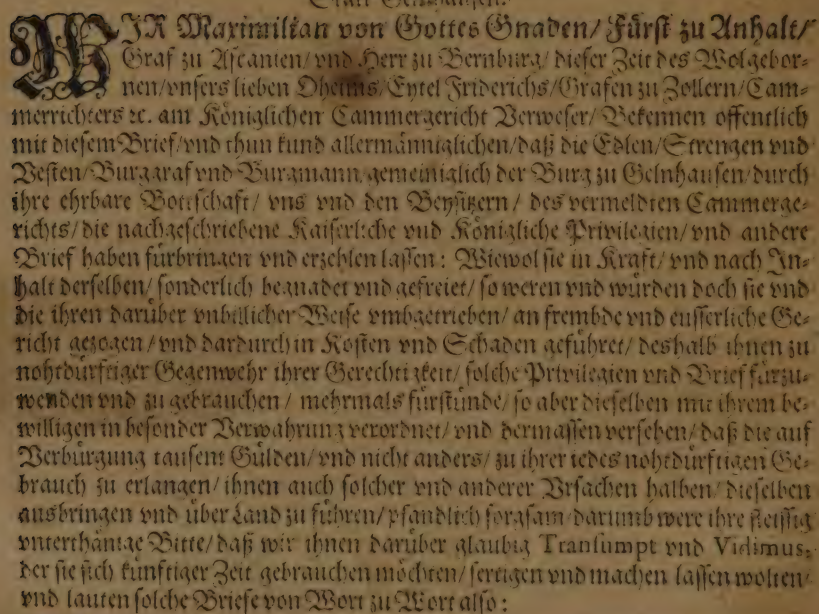 WIR Maximilian von Gottes Gnaden/ Fürst zu Anhalt/
Graf zu Ascanien/ vnd Herr zu Bernburg/ dieser Zeit des Wolgebor-
nen/ vnsers lieben Oheims/ Eytel Friderichs/ Grafen zu Zollern/ Cam-
merrichters ꝛc. am Königlichen Cammergericht Verweser/ Bekennen offentlich
mit diesem Brief/ vnd thun kund allermänniglichen/ daß die Edlen/ Strengen vnd
Vesten/ Burggraf vnd Burgmann gemeiniglich der Burg zu Gelnhausen/ durch
ihre ehrbare Bottschaft/ vns vnd den Beysitzern/ des vermeldten Cammerge-
richts/ die nachgeschriebene Kaiserliche vnd Königliche Privilegien/ vnd andere
Brief haben fürbringen vnd erzehlen lassen: Wiewol sie in Kraft/ vnd nach In-
halt derselben/ sonderlich begnadet vnd gefreiet/ so weren vnd würden doch sie vnd
die ihren darüber vnbillicher Weise vmbgetrieben/ an frembde vnd eusserliche Ge-
richt gezogen/ vnd dardurch in Kosten vnd Schaden geführet/ deshalb ihnen zu
nohtdürftiger Gegenwehr ihrer Gerechtigkeit/ solche Privilegien vnd Brief fürzu-
wenden vnd zu gebrauchen/ mehrmals fürstünde/ so aber dieselben mit ihrem be-
willigen in besonder Verwahrung verordnet/ vnd dermassen versehen/ daß die auf
Verbürgung tausent Gülden/ vnd nicht anders/ zu ihrer iedes nohtdürftigen Ge-
brauch zu erlangen/ ihnen auch solcher vnd anderer Vrsachen halben/ dieselben
ausbringen vnd über Land zu führen/ pfandlich sorgsam/ darumb were ihre fleissig
vnterthänige Bitte/ daß wir ihnen darüber glaubig Transumpt vnd Vidimus,
der sie sich künftiger Zeit gebrauchen möchten/ fertigen vnd machen lassen wolten/
vnd lauten solche Briefe von Wort zu Wort also: